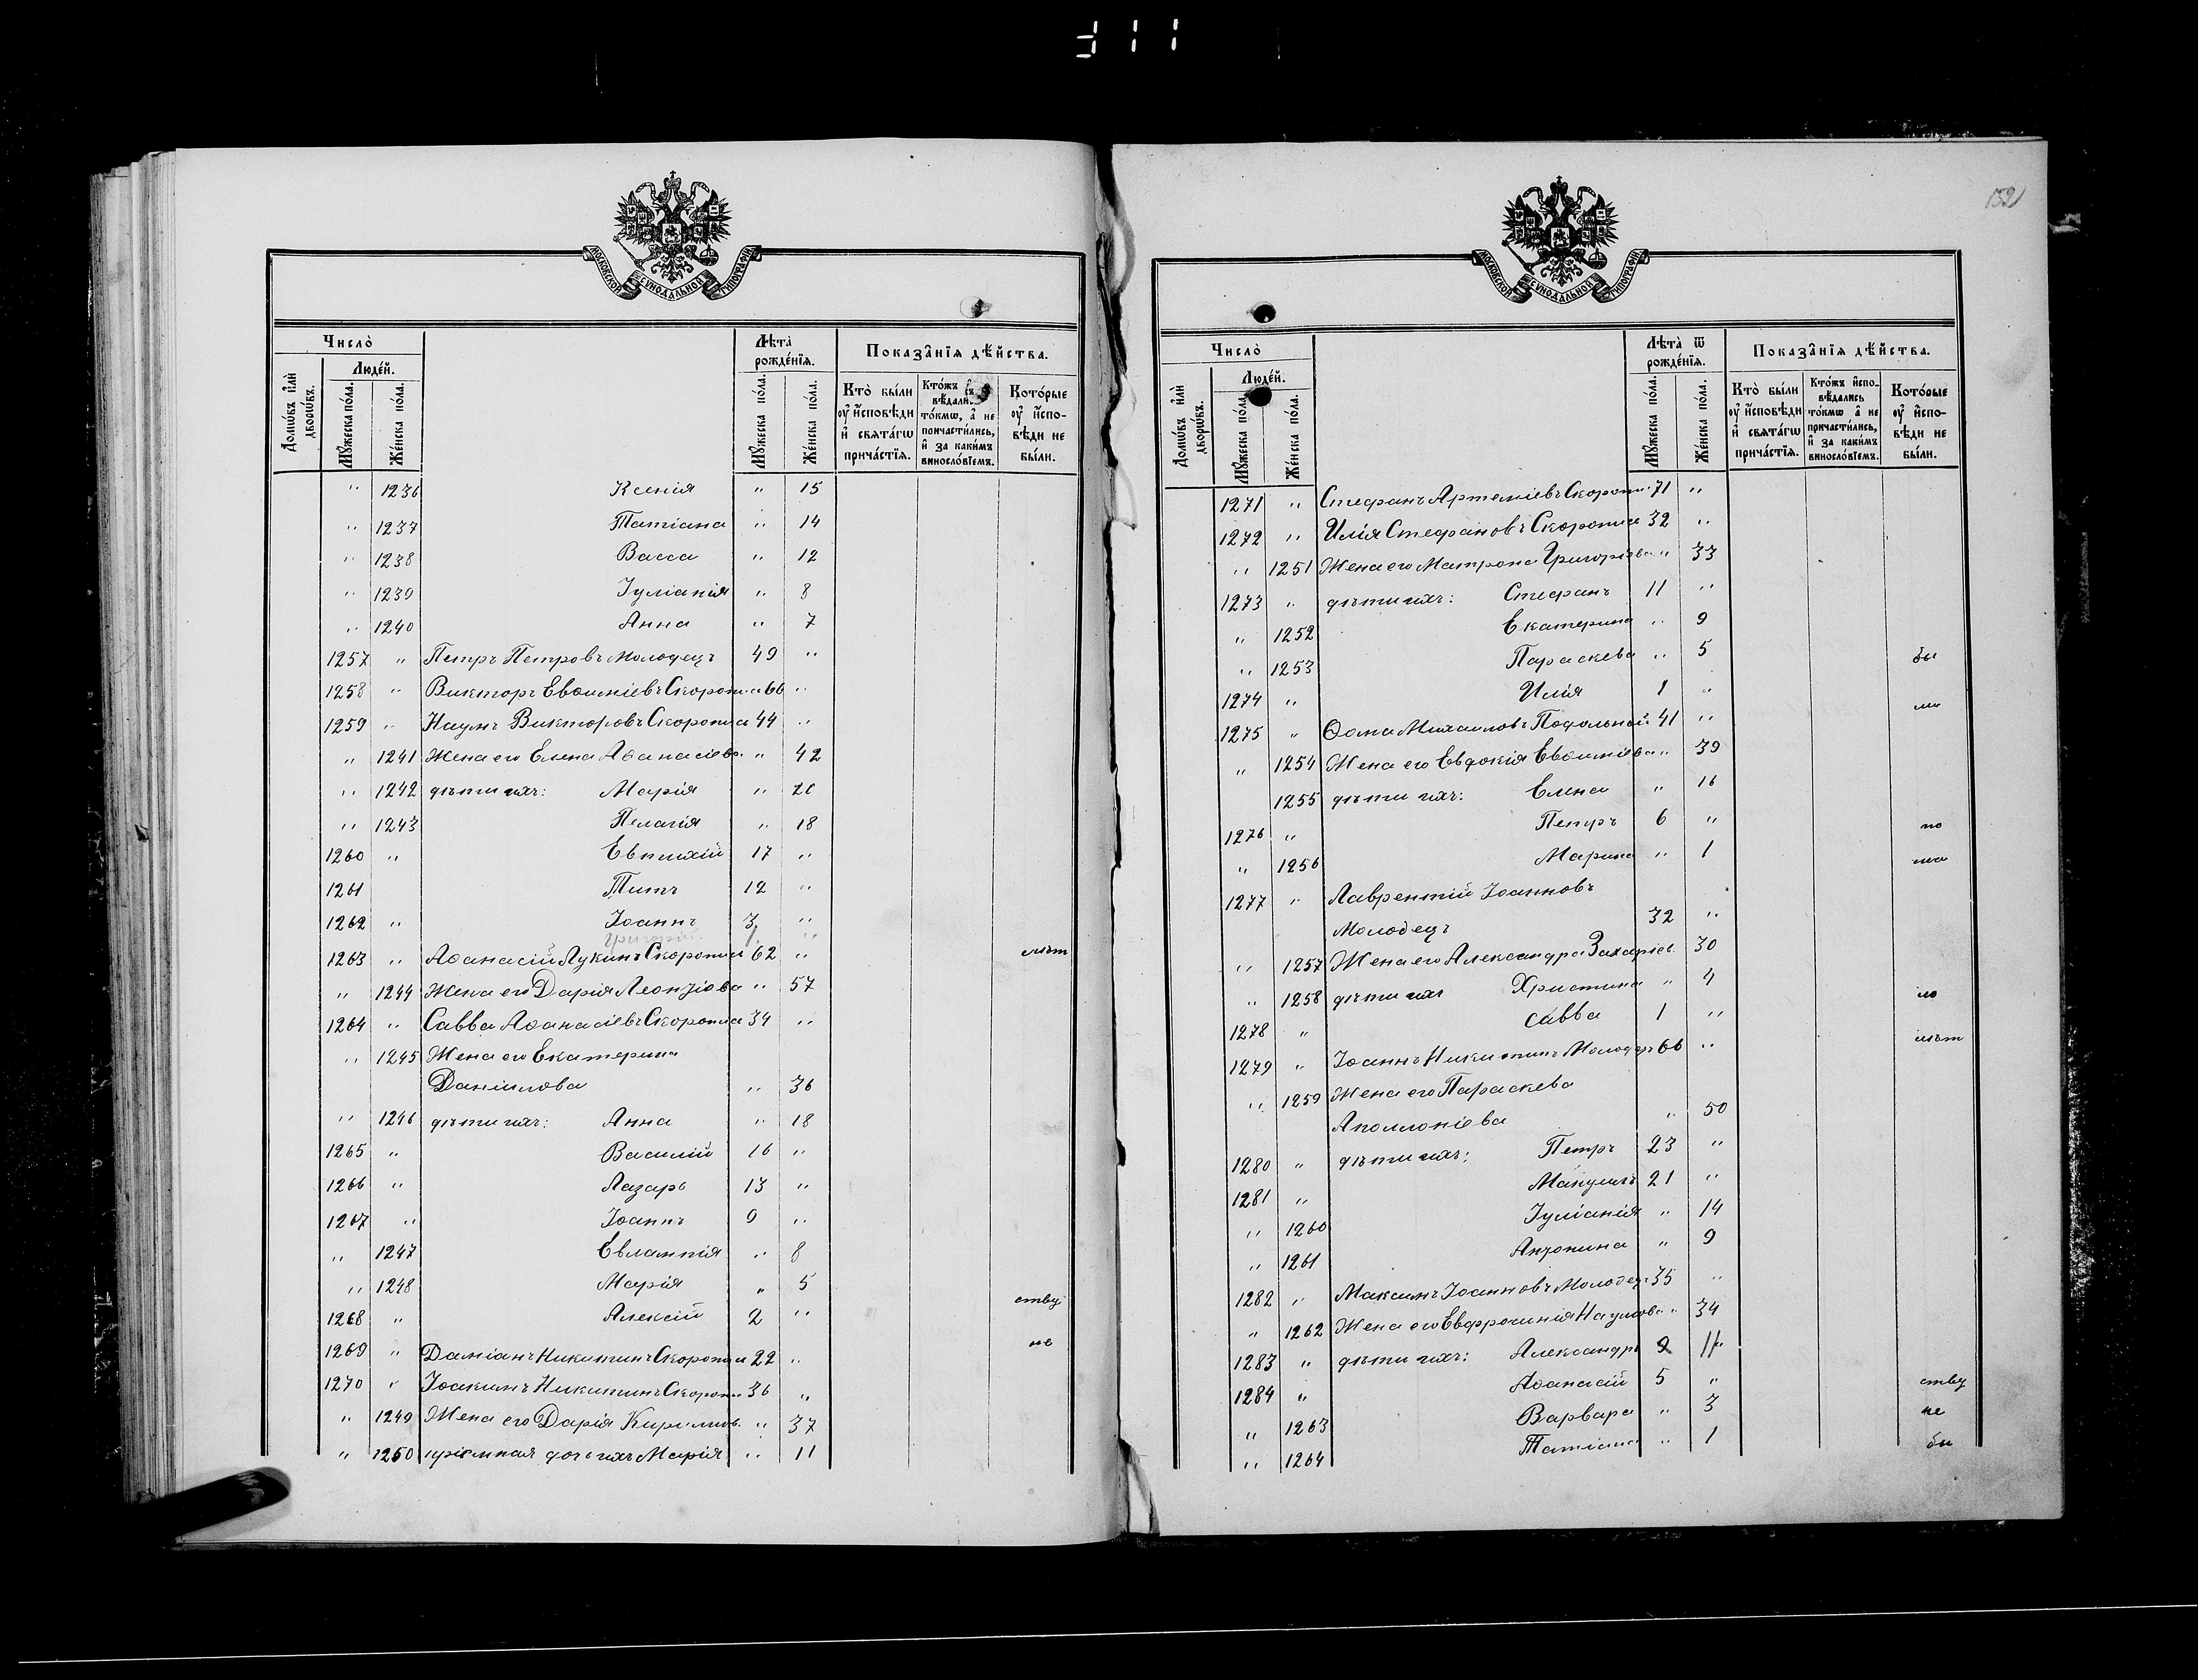 МОСКОВСКОЙ СѴНОДАЛЬНОЙ ТИПОГРАФІИ
Число̀
Людéй.
Домѡ́въ и҆лѝ дворѡ́въ.
Мꙋ́жеска по́ла.
Же́нска по́ла.
Лѣ́та̀
рожде́нїѧ.
Мꙋ́жеска по́ла.
Же́нска по́ла.
Показа̑нїѧ дѣ́йства.
Кто̀ бы́ли
ᲂу҆ и҆́сповѣди
и҆ свѧта́гѡ
прича́стїѧ.
то́кмѡ, а҆ не
причасти́лись,
и҆ за каки́мъ
винослóвїемъ.
Кото́рые
ᲂу҆ и҆́спо-
вѣди не
бы́ли.
" 1236 Ксенія " 15
" 1237 Татіана " 14
" 1238 Васса " 12
" 1239 Іуліанія " 8
" 1240 Анна " 7
1257 " Петръ Петровъ Молодецъ 49 "
1258 " Викторъ Евѳиміевъ Скоропа 60 "
1259 " Наумъ Викторовъ Скоропа 44 "
" 1241 Жена его Елена Аѳанасіева " 42
" 1242 дѣти ихъ: Марія " 20
" 1243 Пелагія " 18
1260 " Евтихій 17 "
1261 Титъ 12 "
1262 " Іоаннъ 3 "
Григорій 1 "
1263 " Аѳанасій Лукинъ Скоропа 62 " лѣт
" 1244 Жена его Дарія Леонтіева " 57
1264 " Савва Аѳанасіевъ Скоропа 34 "
" 1245 Жена его Екатерина
Даніилова " 36
" 1246 дѣти ихъ: Анна " 18
1265 " Василій 16 "
1266 " Лазарь 13 "
1267 " Іоаннъ 9 "
" 1247 Евлампія " 8
" 1248 Марія " 5
1268 " Алексій 2 " ству
1269 " Даміанъ Никитинъ Скоропа 22 " не
1270 " Іоакимъ Никитинъ Скоропа 36 "
" 1249 Жена его Дарія Кирилов. " 37
" 1250 пріемная дочь ихъ Марія " 11
МОСКОВСКОЙ СѴНОДАЛЬНОЙ ТИПОГРАФІИ
Число̀
Людéй.
Домѡ́въ и҆лѝ дворѡ́въ.
Мꙋ́жеска по́ла.
Же́нска по́ла.
Лѣ́та̀ ѿ
рожде́нїѧ.
Мꙋ́жеска по́ла.
Же́нска по́ла.
Показа̑нїѧ дѣ́йства.
Кто̀ бы́ли
ᲂу҆ и҆́сповѣди
и҆ свѧта́гѡ
прича́стїѧ.
Кто́жъ и҆спо-
вѣдались
то́кмѡ а҆ не
причасти́лись,
и҆ за каки́мъ
винослóвїемъ.
Кото́рые
ᲂу҆ и҆́спо-
вѣди не
бы́ли.
1271 " Стефанъ Артеміевъ Скоропа 71 "
1272 " Илія Стефановъ Скоропа 32 "
" 1251 Жена его Матрона Григоріева " 33
1273 " дѣти ихъ: Стефанъ 11 "
" 1252 Екатерина " 9
" 1253 Параскева " 5 бы
1274 " Илія 1 " ли
1275 " Ѳома Михаиловъ Подольный 41 "
" 1254 Жена его Евдокія Евѳиміева " 39
1255 дѣти ихъ: Елена " 16
1276 " Петръ 6 " по
" 1256 Марина " 1 ма
1277 " Лаврентій Іоанновъ
Молодецъ 32 "
" 1257 Жена его Александра Захаріев. 30
" 1258 дѣти ихъ Христина " 4
1278 " Савва 1 " ло
1279 " Іоаннъ Никитинъ Молодецъ 66 " лѣт
" 1259 Жена его Параскева
Аполлоніева " 50
1280 " дѣти ихъ: Петръ 23 "
1281 " Мануилъ 21 "
" 1260 Іуліанія " 14
" 1261 Антонина " 9
1282 " Максимъ Іоанновъ Молодецъ 35 "
" 1262 Жена его Евфросинія Наумова " 34
1283 " дѣти ихъ: Александръ
1284 " Аѳанасій 5 " ству
" 1263 Варвара " 3 не
" 1264 Татіана " 1 бы